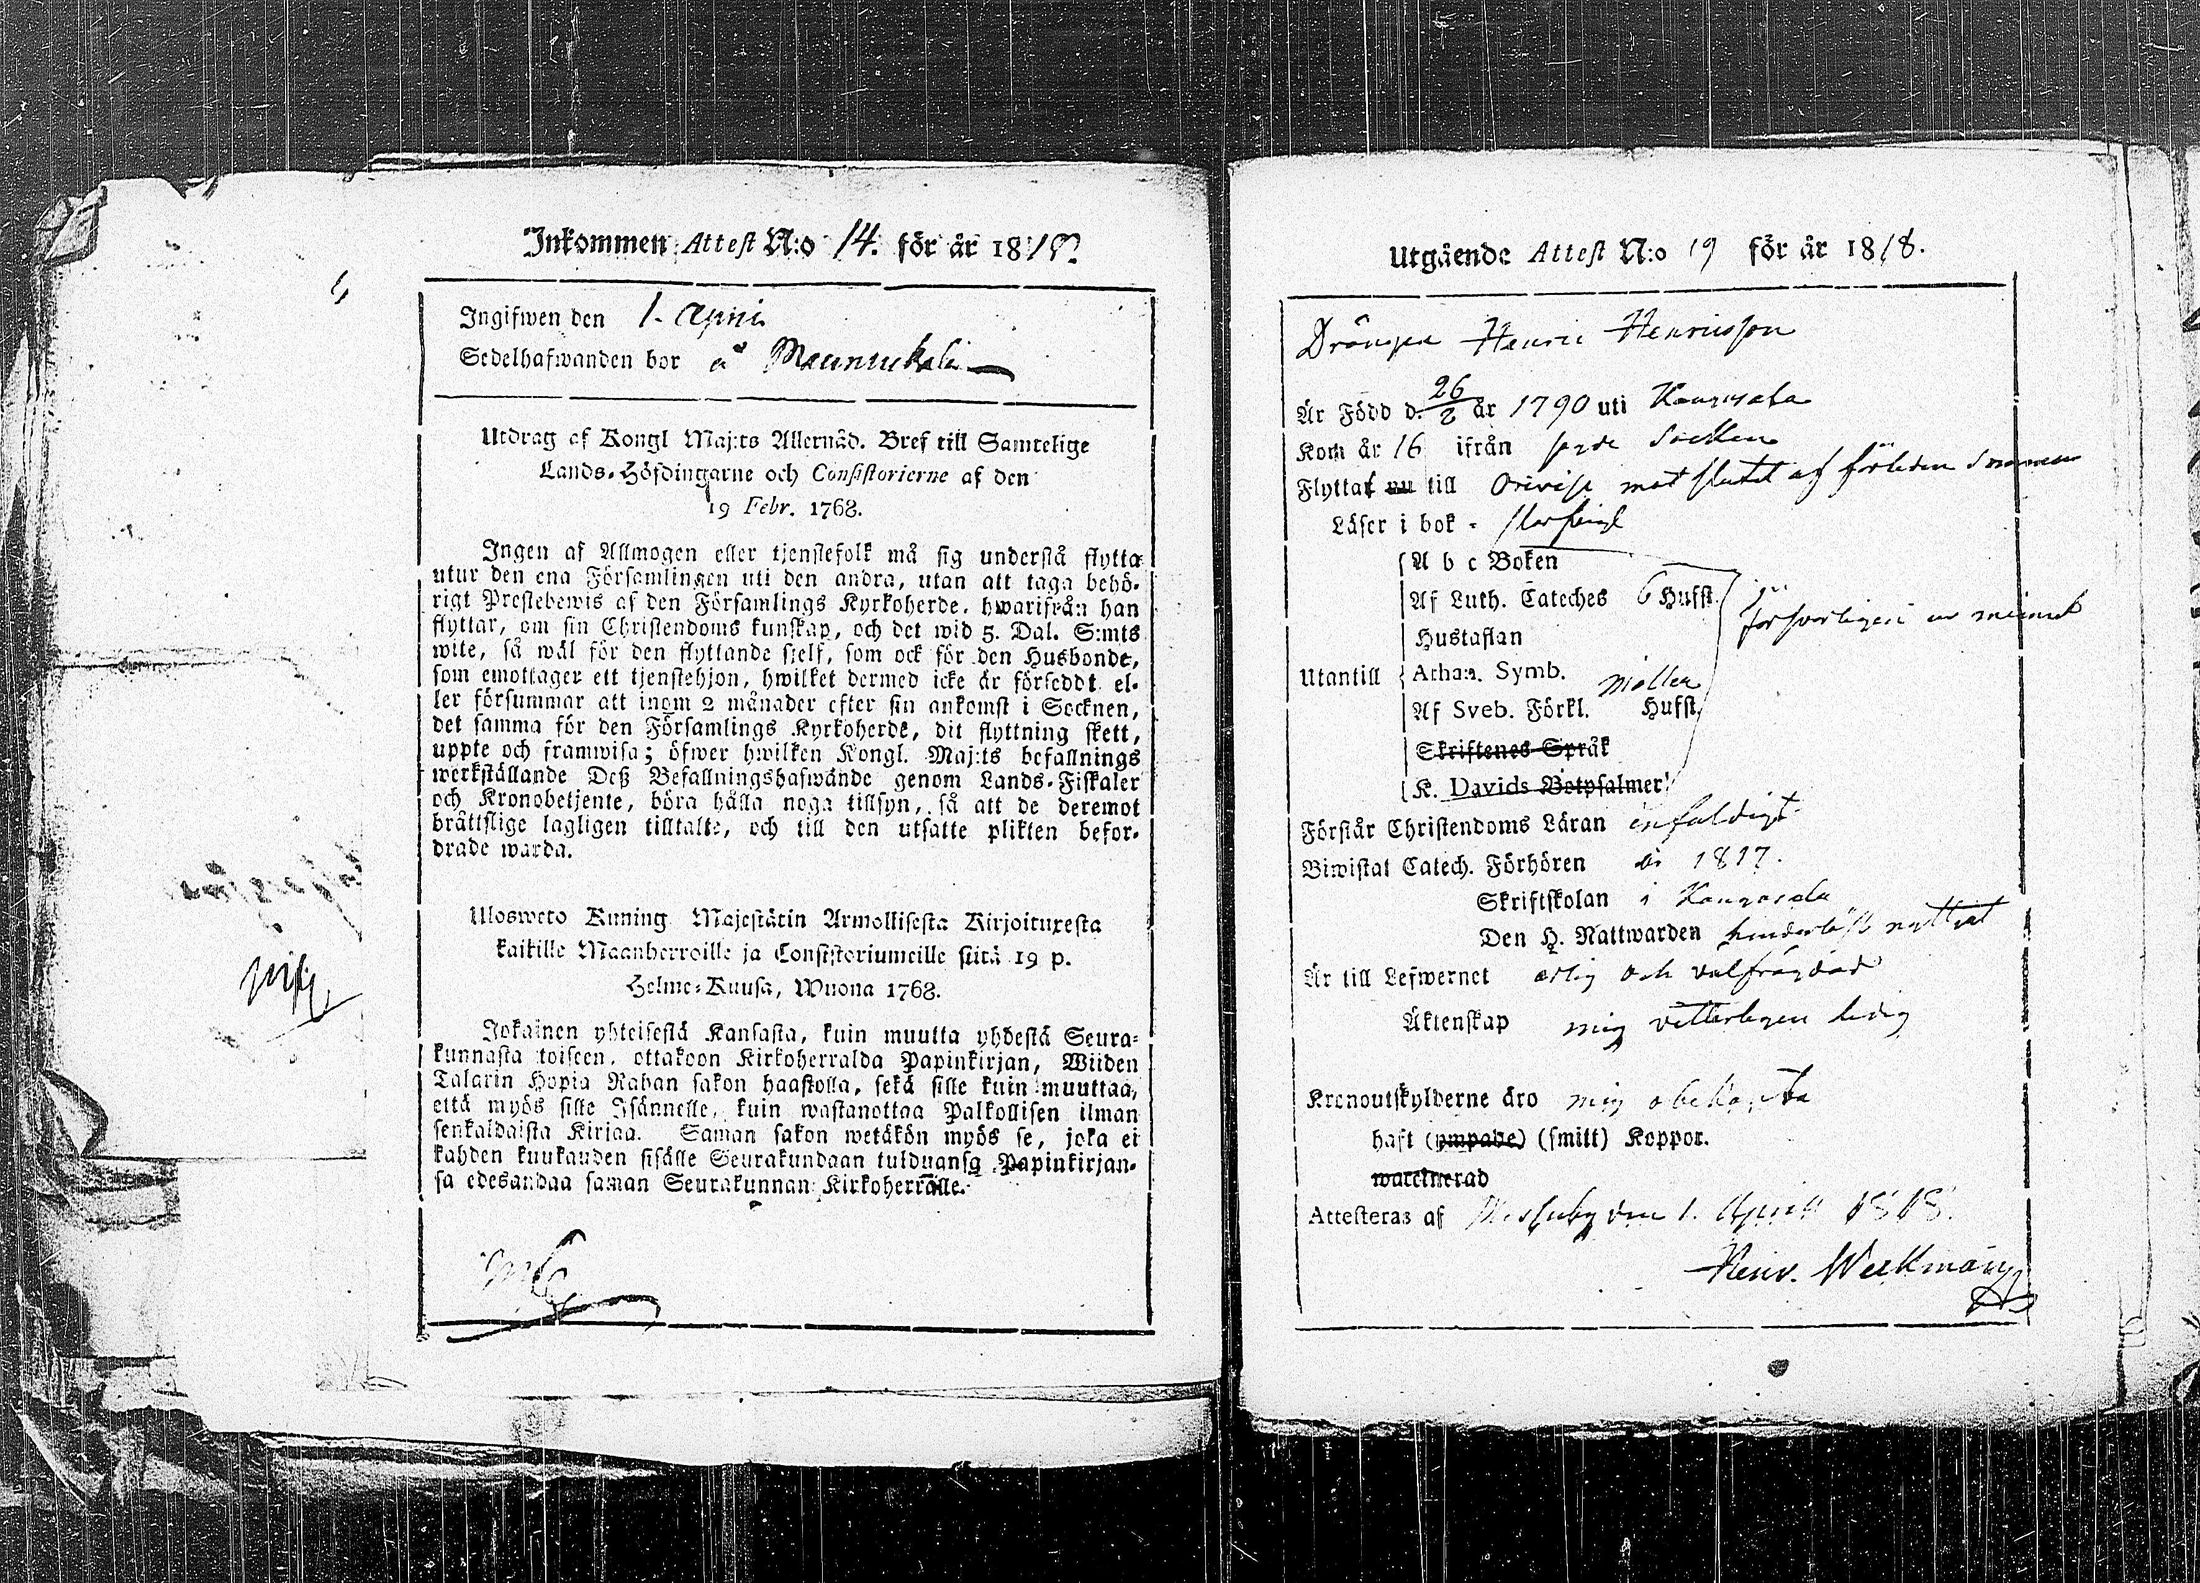 Inkommen Attest N:o 14. för år 1818
Ingifwen den 1. April
Sedelhafwanden bor å Maunukala
Utdrag af Kongl Maj:ts Allernåd. Bref till Samtelige
Lands-Höfdingarne och Consistorierne af den
19 Febr. 1768.
Ingen af Allmogen eller tjenstefolk må sig understå flytta
utur den ena Församlingen uti den andra, utan att taga behö-
rigt Prestebewis af den Församlings Kyrkoherde, hwarifrån han
flyttar, om sin Christendoms kunskap, och det wid 5. Dal. S:mts
wite, så wäl för den flyttande sjelf, som ock för den Husbonde,
som emottager ett tjenstehjon, hwilket dermed icke är försedt el-
ler försummar att inom 2 månader efter sin ankomst i Socknen,
det samma för den Församlings Kyrkoherde, dit flyttning skett,
uppte och framwisa; öfwer hwilken Kongl. Maj:ts befallnings
werkställande Deß Befallningshafwände genom Lands-Fiskaler
och Kronobetjente, böra hålla noga tillsyn, så att de deremot
bråttslige lagligen tilltalte, och till den utsatte plikten befor-
drade warda.
Ulosweto Kuning Majestätin Armollisesta Kirjoituxesta
kaikille Maanherroille ja Consistoriumeille siitä 19 p.
Helme-Kuusa, Wuona 1768.
Jokainen yhteisestä Kansasta, kuin muutta yhdestä Seura-
kunnasta toiseen, ottakoon Kirkoherralda Papinkirjan, Wiiden
Talarin Hopia Rahan sakon haastolla, sekä sille kuin muuttaa,
että myös sille Isännelle, kuin wastanottaa Palkollisen ilman
senkaldaista Kirjaa. Saman sakon wetäkön myös se, joka ei
kahden kuukauden sisälle Seurakundaan tulduansa Papinkirjan-
sa edesandaa saman Seurakunnan Kirkoherralle.
Utgående Attest N:o 19 för år 1818.
Drängen Henric Henricsson
Är Född d. 26/2 år 1790 uti Kangasala
Kom år 16 ifrån socken
Flyttat nu till Orivesi mot slutet af förleden sommar
Läser i bok
A b c Boken
Af Luth. Cateches 6 Hufst.
försvarligen
Hustaflan
Utantill Athan. Symb.
Af Sveb. Förkl. Hufst.
Skriftenes Språk
K. Davids Botpsalmer
Förstår Christendoms Läran enfaldigt
Biwistat Catech. Förhören år 1817.
Skriftskolan i Kangasala
Den H. Nattwarden hinderlöst nyttjat
Är till Lefwernet ärlig och välfrägdad
Äktenskap mig vetterligen ledig
Kronoutskylderne äro mig obekanta
haft (ympade) (smitt) Koppor.
waccinerad
Attesteras af Messuby den 1. April 1818.
Henr. Weckman